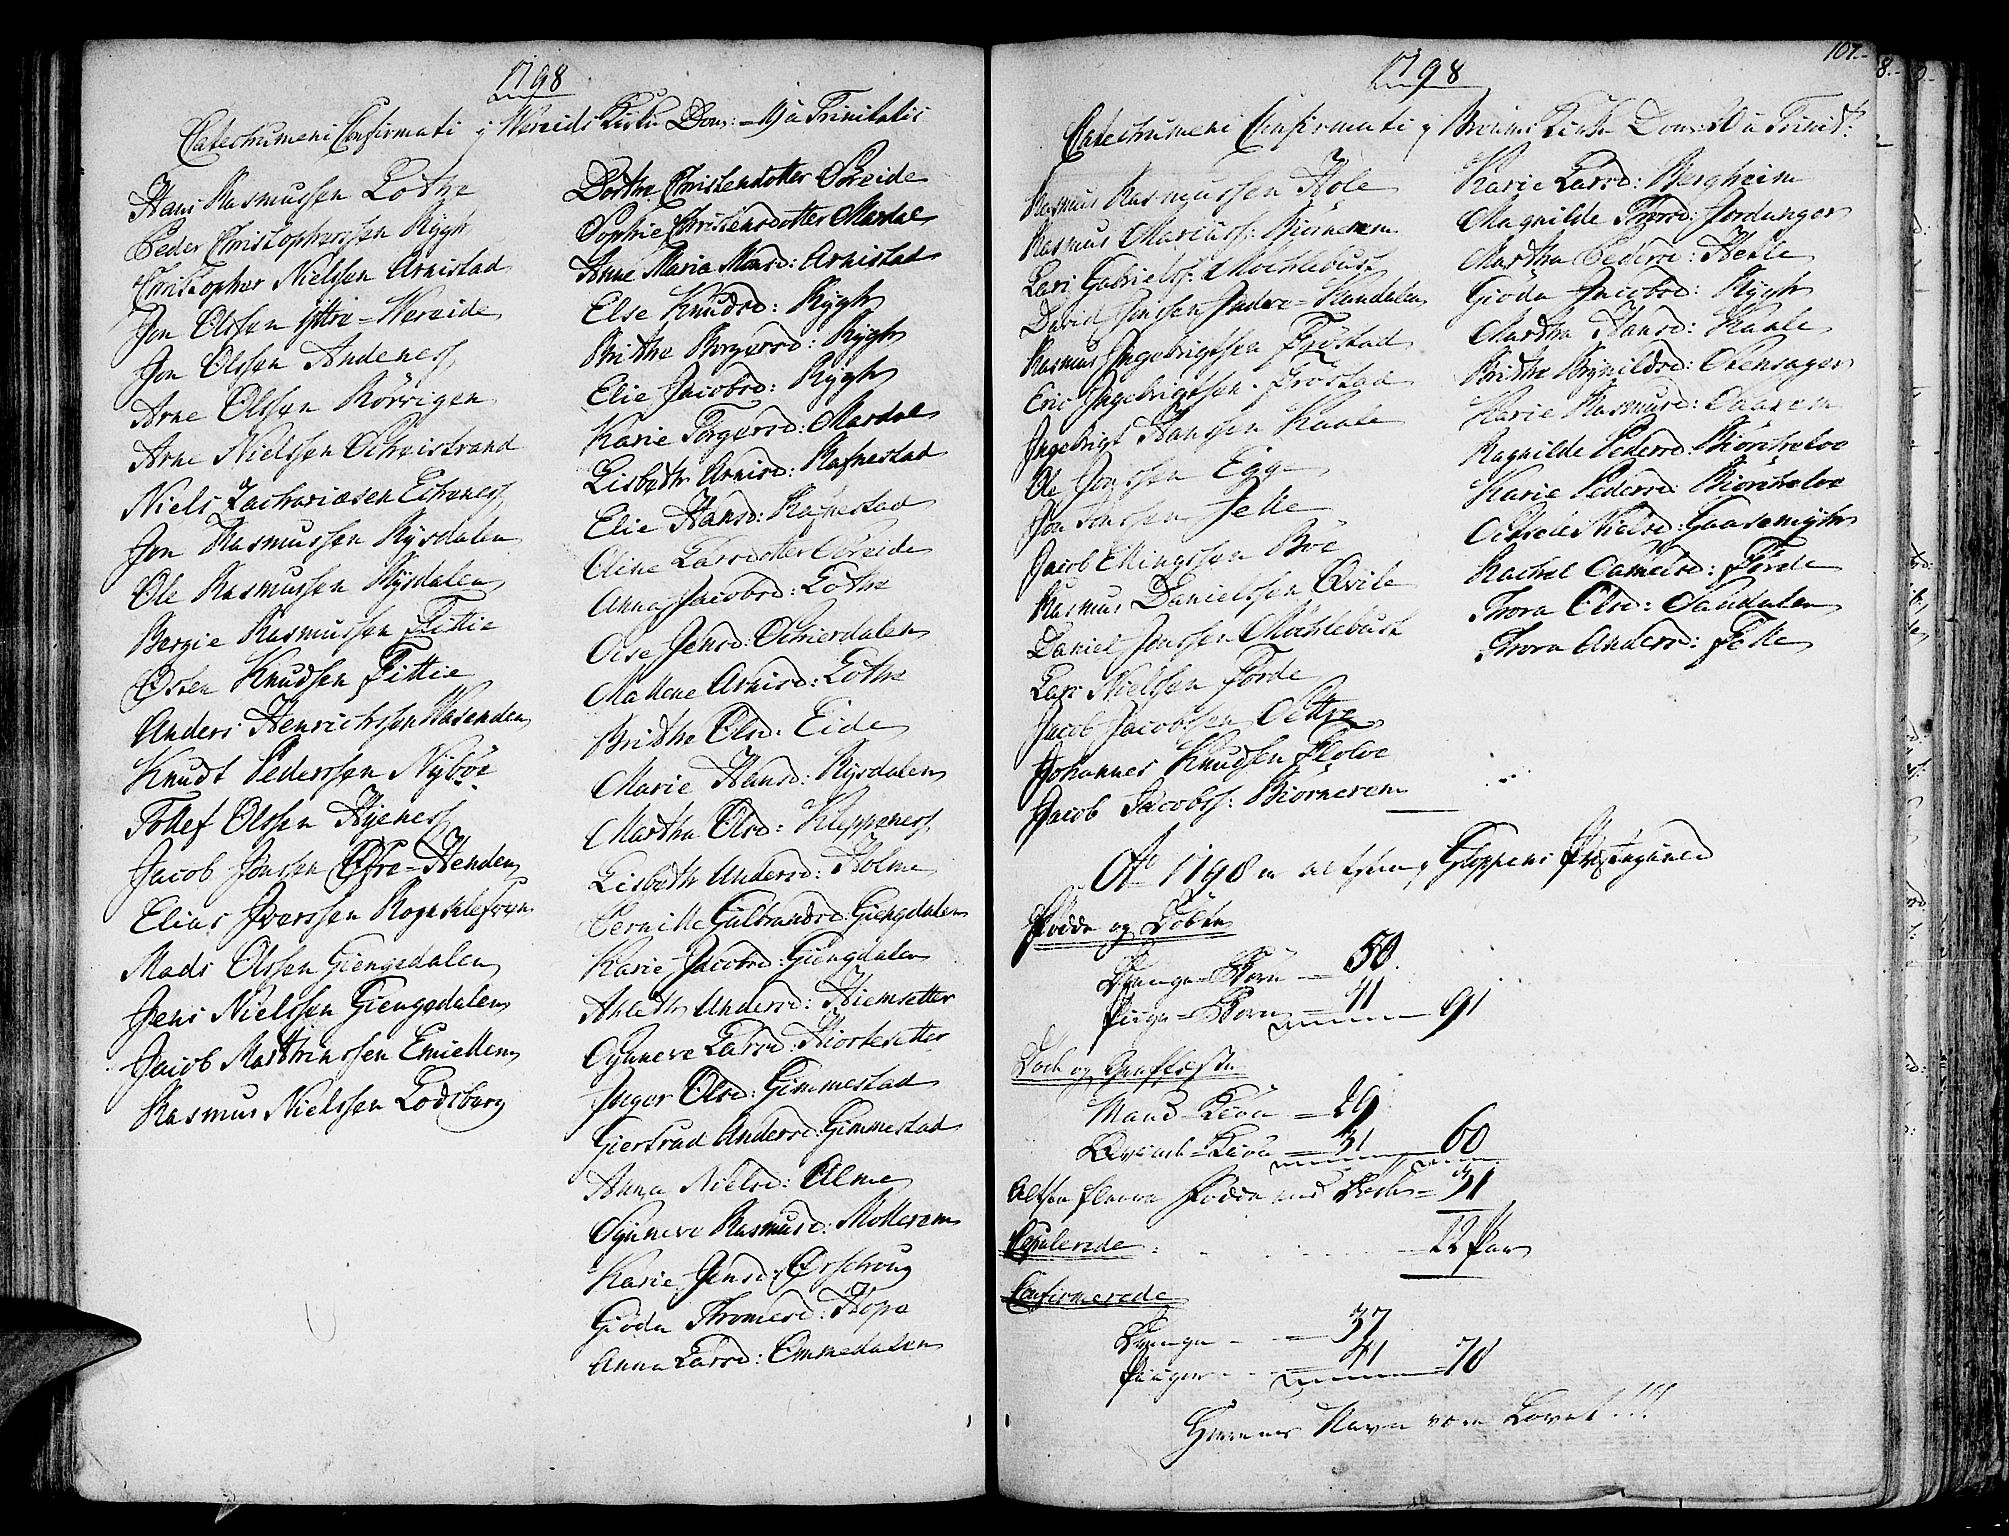 1798
Catechumeni Confirmati i Wereids Kirke Dom: 19 a Trinitatis
Hans Rasmussen Lothe
Peder Christophersen Rygh
Christopher Nielssen Arnestad
Jon Olssen Yttre-Wereide
Jon Olssen Andenes
Arne Olssen Rörvigen
Arne Nielssen Scheistrand
Niels Zachariasen Eitrenes
Jon Rasmussen Rysdalen
Ole Rasmussen Rysdalen
Bergie Rasmussen Fittie
Osten Knudsen Fittie
Anders Henrichsen Wasenden
Knudt Pederssen Nyböe
Tollef Olssen Hyenes
Jacob Jonssen Öfre-Henden
Elias Iverssen Rognklefven
Mads Olssen Giengedalen
Jens Nielssen Giengedalen
Jacob Matthiassen Emiellem
Rasmus Nielssen Lodsberg
Dorthe Christensdotter Söreide
Sophie Christensdotter Mardal
Anne Maria Monsd: Arnistad
Else Knudsd: Rygh
Brithe Borgersd: Rygh
Elie Jacobsd: Rygh
Karie Torgersd: Mardal
Lisbeth Arnisd: Rafnestad
Elie Hansd: Rafnestad
Oline Larsdotter Söreide
Anna Jacobsd: Lothe
Ose Jensd: Schierdalen
Mallene Arnisd: Lothe
Brithe Olsd: Eide
Marie Hansd: Rysdalen
Martha Olsd: Kleppenes
Lisbeth Andersd: Holme
Pernille Gulbrandsd: Giengdalen
Karie Jacobsd: Giengdalen
Ahlath Andersd: Hiemsetter
Synneve Larsd: Hiortesetter
Inger Olsd: Gimmestad
Giertrud Andersd: Gimmestad
Anna Nielsd: Alme
Synneve Rasmusd: Mollerem
Karie Jensd: Örschoug
Giöda Thomesd: Hope
Anna Larsd: Emmedalen
107.
1798
Catechumeni Confirmati i Breims Kirke Dom: 20 a Trinit:
Rasmus Rasmussen Hole
Rasmus Mariuss: Biörnerem
Lars Gabrielss: Mochlebust
David Jonssen Indre-Kandalen
Rasmus Ingebrigtsen Fröstad
Eric Ingebrigtsen Fröstad
Ingebrigt Hanssen Kaale
Ole Jonssen Egge
Jon Jonssen Felle
Jacob Ellingssen Böe
Rasmus Danielssen Qvile
Daniel Jonssen Mochlebust
Lars Nielssen Förde
Jacob Jacobssen Settre
Johannes Knudsen Flolve
Jacob Jacobss: Biörnerem
Karie Larsd: Bergheim
Magnilde Thorsd: Jordanger
Martha Pedersd: Hetle
Giöda Jacobsd: Rygh
Martha Hansd: Kaale
Brithe Brynildsd: Stensager
Karie Rasmusd: Saarem
Ragnilde Pedersd: Biörcheloe
Karie Pedersd: Biörcheloe
Nielsd: Gaasemyhr
Rachel Samuelsd: Förde
Thora Olsd: Sandalen
Thora Andersd: Felle
Ao 1798 er altsaa i Gloppens Præstegield
Födde og Döbte
Drenge-Börn – 50
Piige-Börn – 41 – 91
Döde og Graffæstede
Mand-Kiön – 29
Qvinde-Kiön – 31 – 60
Altsaa fleere Födde end Döde – 31
Copulerede – 22 Par
Confirmerede
Drenge – 37
Piiger – 41 – 78
Herrens Navn være Lovet!!!